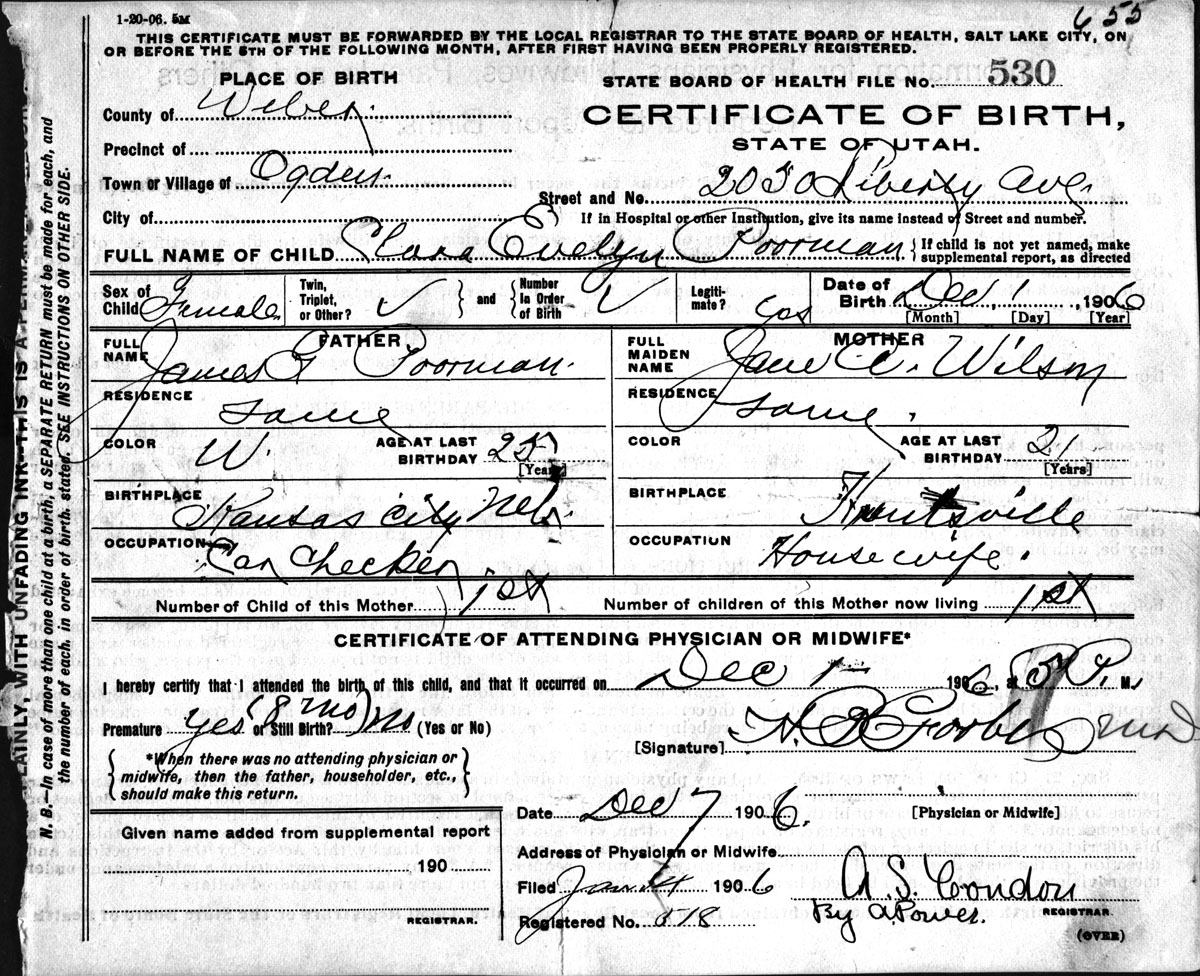 1-20-06. 5M
655
THIS CERTIFICATE MUST BE FORWARDED BY THE LOCAL REGISTRAR TO THE STATE BOARD OF HEALTH, SALT LAKE CITY, ON
OR BEFORE THE 5TH OF THE FOLLOWING MONTH, AFTER FIRST HAVING BEEN PROPERLY REGISTERED.
PLACE OF BIRTH
STATE BOARD OF HEALTH FILE No. 530
County of Weber
CERTIFICATE OF BIRTH,
Precinct of
STATE OF UTAH.
Town or Village of Ogden
Street and No. 2030 Liberty Ave.
City of
If in Hospital or other Institution, give its name instead of Street and number.
FULL NAME OF CHILD Clara Evelyn Poorman
{If child is not yet named, make
supplemental report, as directed
Sex of Child Female
Twin, Triplet, or Other? } and { Number In Order of Birth
Legiti-mate? yes
Date of Birth Dec 1, 1906
[Month] [Day] [Year]
FATHER
MOTHER
FULL NAME James G Poorman.
FULL MAIDEN NAME Jane A. Wilson
RESIDENCE Same
RESIDENCE Same.
COLOR W.
AGE AT LAST BIRTHDAY 25
[Years]
COLOR
AGE AT LAST BIRTHDAY 21
[Years]
BIRTHPLACE Kansas City Neb.
BIRTHPLACE Huntsville
OCCUPATION Car Checker
OCCUPATION Housewife.
Number of Child of this Mother 1st
Number of children of this Mother now living 1st
CERTIFICATE OF ATTENDING PHYSICIAN OR MIDWIFE*
I hereby certify that I attended the birth of this child, and that it occurred on Dec 1 1906, at P. M.
Premature yes (8 mo) or Still Birth? no (Yes or No)
[Signature] H. B. Forbes M.D.
{*When there was no attending physician or
midwife, then the father, householder, etc.,
should make this return.}
Date Dec 7 1906.
[Physician or Midwife]
Given name added from supplemental report
Address of Physician or Midwife
190
Filed Jan 4 1906
A. S. Condon
By A. Power.
REGISTRAR.
REGISTRAR.
Registered No. 618
(OVER)
PLAINLY, WITH UNFADING INK—THIS IS A PERMANENT
N. B.—In case of more than one child at a birth, a SEPARATE RETURN must be made for each, and
the number of each, in order of birth, stated. SEE INSTRUCTIONS ON OTHER SIDE.